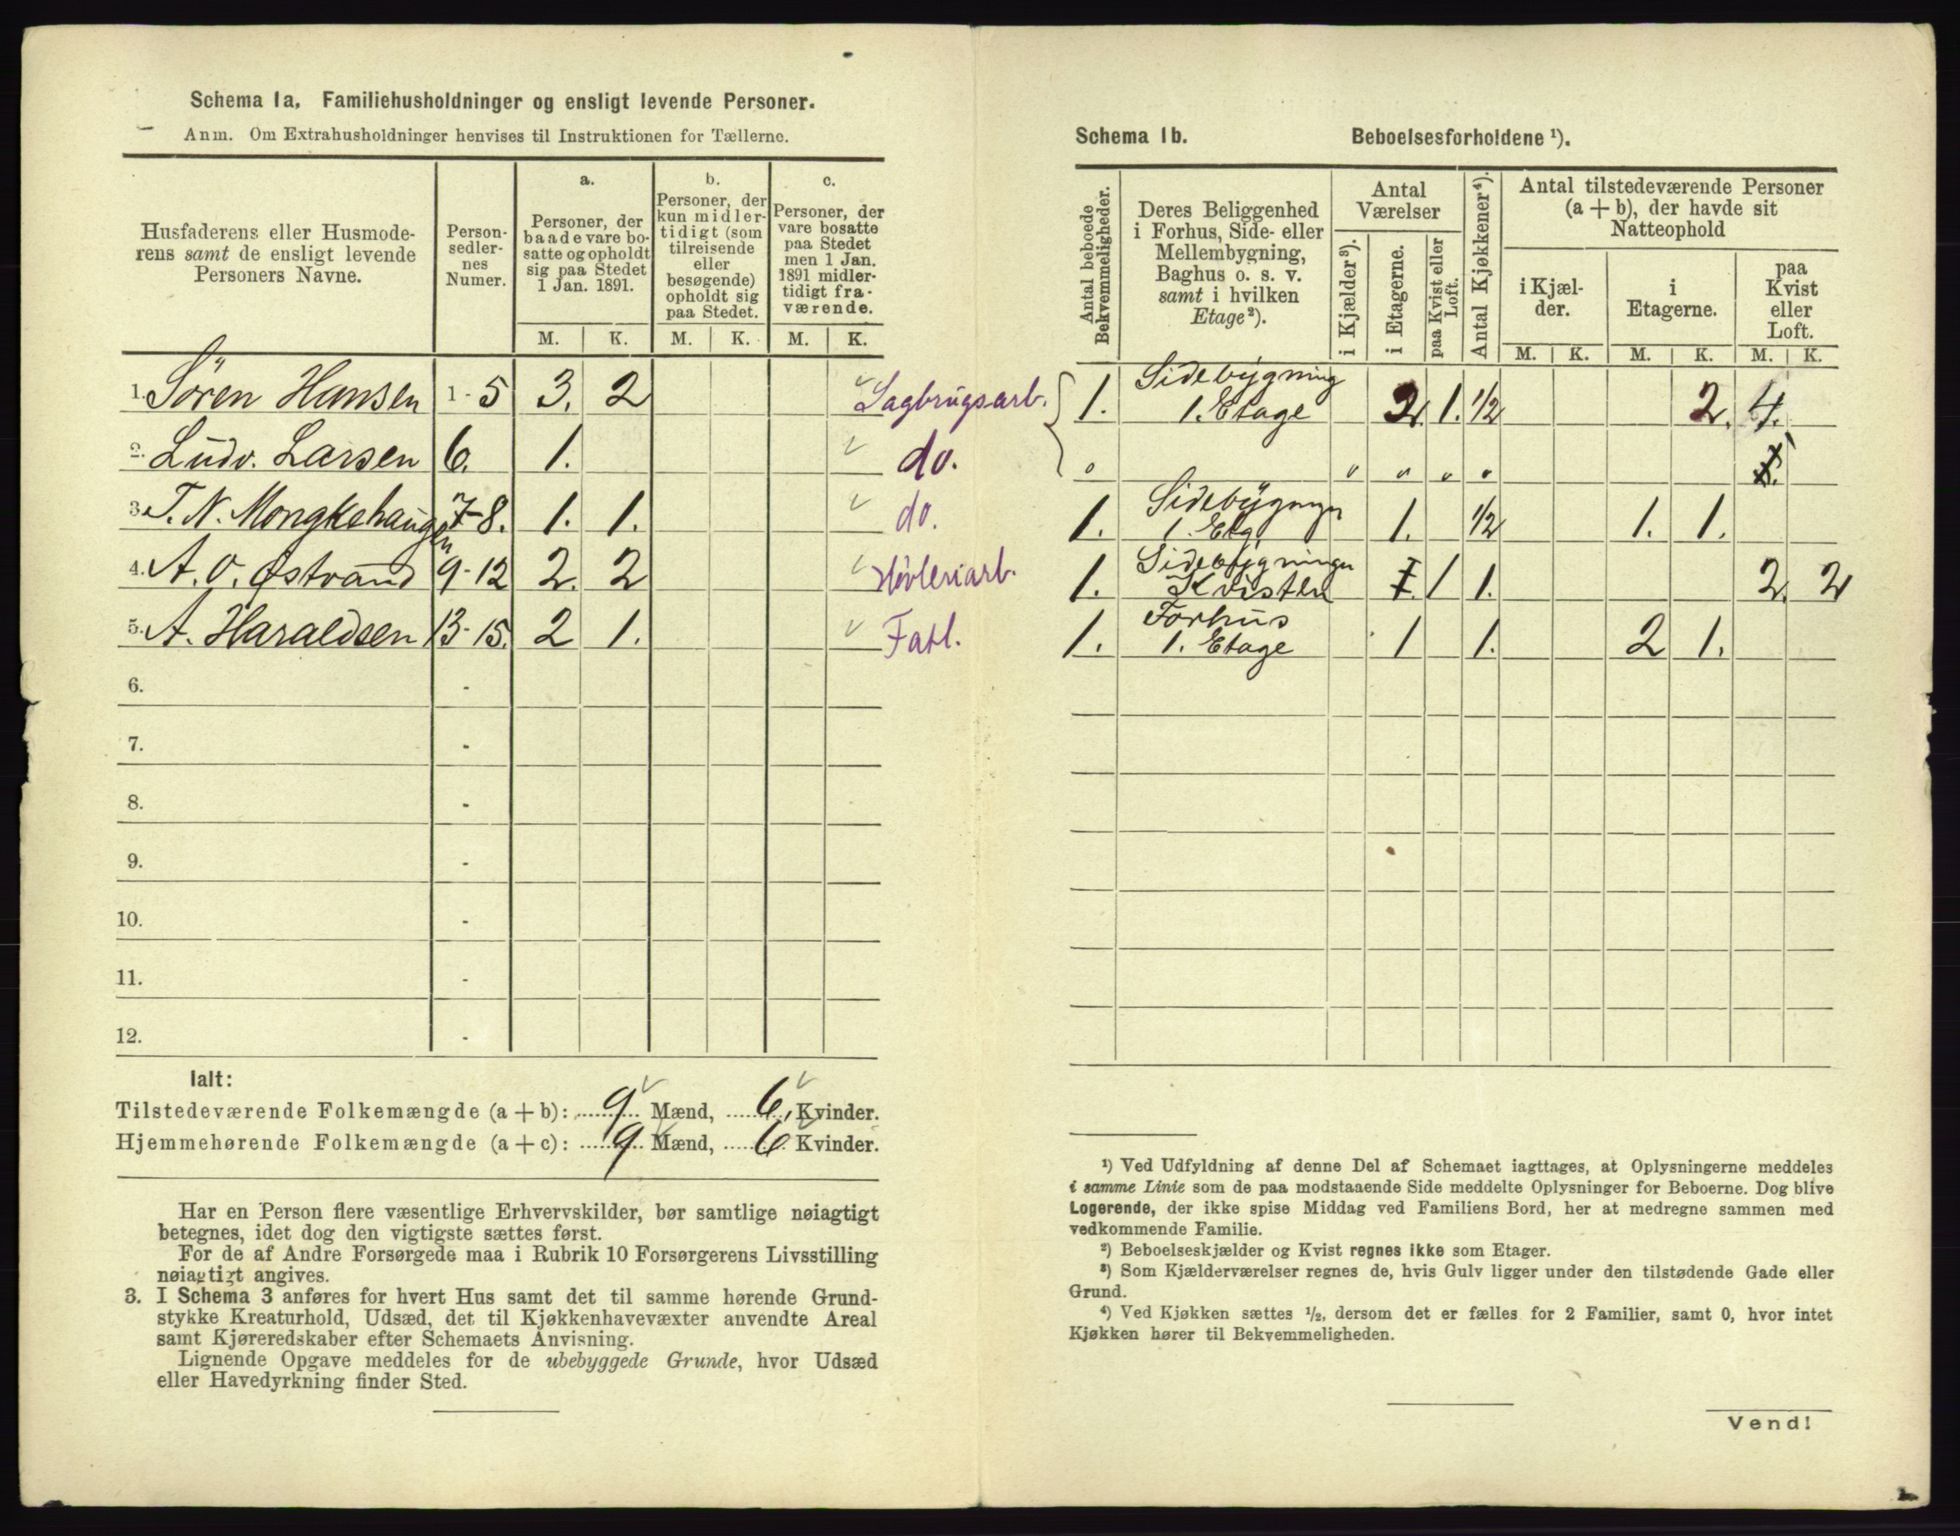 Schema 1a. Familiehusholdninger og ensligt levende Personer.
Anm. Om Extrahusholdninger henvises til Instruktionen for Tællerne.
Husfaderens eller Husmode-
rens samt de ensligt levende
Personers Navne.
Person-
sedler-
nes
Numer.
a.
Personer, der
baade vare bo-
satte og opholdt
sig paa Stedet
1 Jan. 1891.
b.
Personer, der
kun midler-
tidigt (som
tilreisende
eller
besøgende)
opholdt sig
paa Stedet.
c.
Personer, der
vare bosatte
paa Stedet
men 1 Jan.
1891 midler-
tidigt fra-
værende.
M. K. M. K. M. K.
1. Sören Hansen 1-5 3. 2 Sagbrugsarb.
2. Ludv. Larsen 6. 1. do.
3. T. N. Mongkehaugen 7-8. 1. 1. do.
4. A. O. Østvand 9-12 2. 2 Høvleriarb.
5. A. Haraldsen 13-15. 2 1. Fatl.
6. -
7. -
8. -
9. -
10. -
11. -
12. -
Ialt:
Tilstedeværende Folkemængde (a + b): 9 Mænd, 6. Kvinder.
Hjemmehørende Folkemængde (a + c): 9 Mænd, 6 Kvinder.
Har en Person flere væsentlige Erhvervskilder, bør samtlige nøiagtigt
betegnes, idet dog den vigtigste sættes først.
For de af Andre Forsørgede maa i Rubrik 10 Forsørgerens Livsstilling
nøiagtigt angives.
3. I Schema 3 anføres for hvert Hus samt det til samme hørende Grund-
stykke Kreaturhold, Udsæd, det til Kjøkkenhavevæxter anvendte Areal
samt Kjøreredskaber efter Schemaets Anvisning.
Lignende Opgave meddeles for de ubebyggede Grunde, hvor Udsæd
eller Havedyrkning finder Sted.
Schema 1b. Beboelsesforholdene ¹).
Antal beboede
Bekvemmeligheder.
Deres Beliggenhed
i Forhus, Side- eller
Mellembygning,
Baghus o. s. v.
samt i hvilken
Etage²).
Antal
Værelser
i Kjælder³).
i Etagerne.
paa Kvist eller
Loft.
Antal Kjøkkener⁴).
Antal tilstedeværende Personer
(a + b), der havde sit
Natteophold
i Kjæl-
der.
i
Etagerne.
paa
Kvist
eller
Loft.
M. K. M. K. M. K.
1. Sidebygning
1. Etage 2. 1. 1/2 2. 4.
" " " " "
1. Sidebygngn
1. Etg 1. 1/2 1. 1.
1. Sidebygningen
Kvisten 1. 1 1. 2. 2
1. Forhus
1. Etage 1 1. 2 1.
¹) Ved Udfyldning af denne Del af Schemaet iagttages, at Oplysningerne meddeles
i samme Linie som de paa modstaaende Side meddelte Oplysninger for Beboerne. Dog blive
Logerende, der ikke spise Middag ved Familiens Bord, her at medregne sammen med
vedkommende Familie.
²) Beboelseskjælder og Kvist regnes ikke som Etager.
³) Som Kjælderværelser regnes de, hvis Gulv ligger under den tilstødende Gade eller
Grund.
⁴) Ved Kjøkken sættes ¹/₂, dersom det er fælles for 2 Familier, samt 0, hvor intet
Kjøkken hører til Bekvemmeligheden.
Vend!